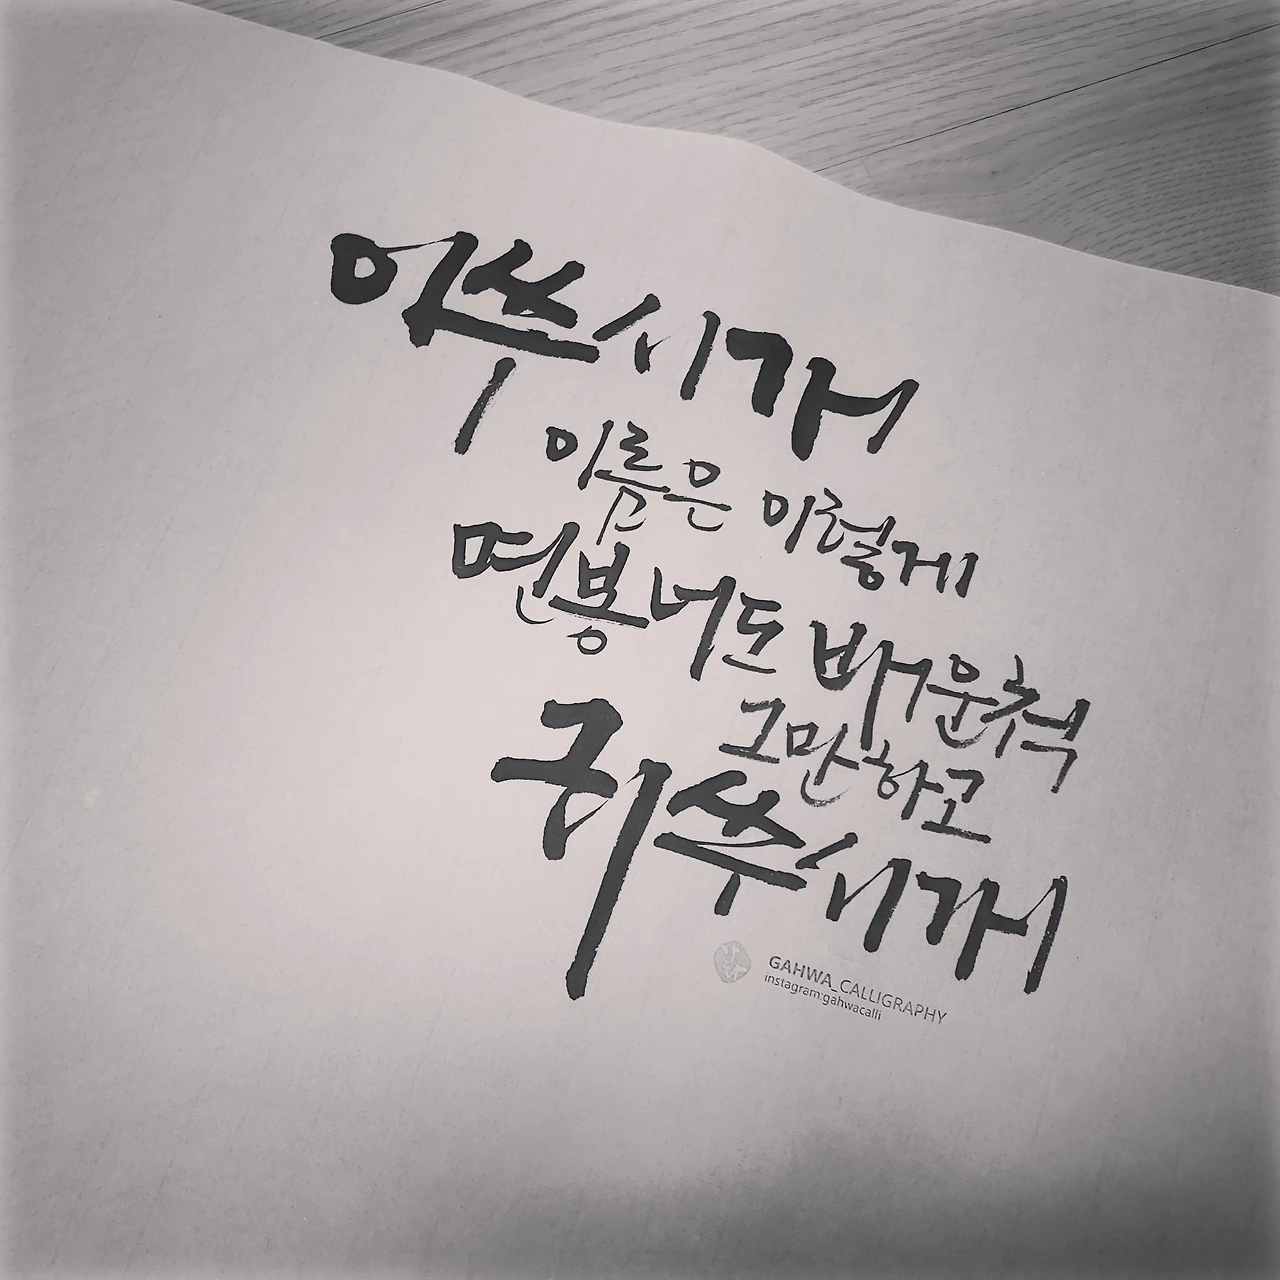 이쑤시개
이름은 이렇게
면봉 너도 배운척
그만하고
귀쑤시개
GAHWA_CALLIGRAPHY
instagram:gahwacalli